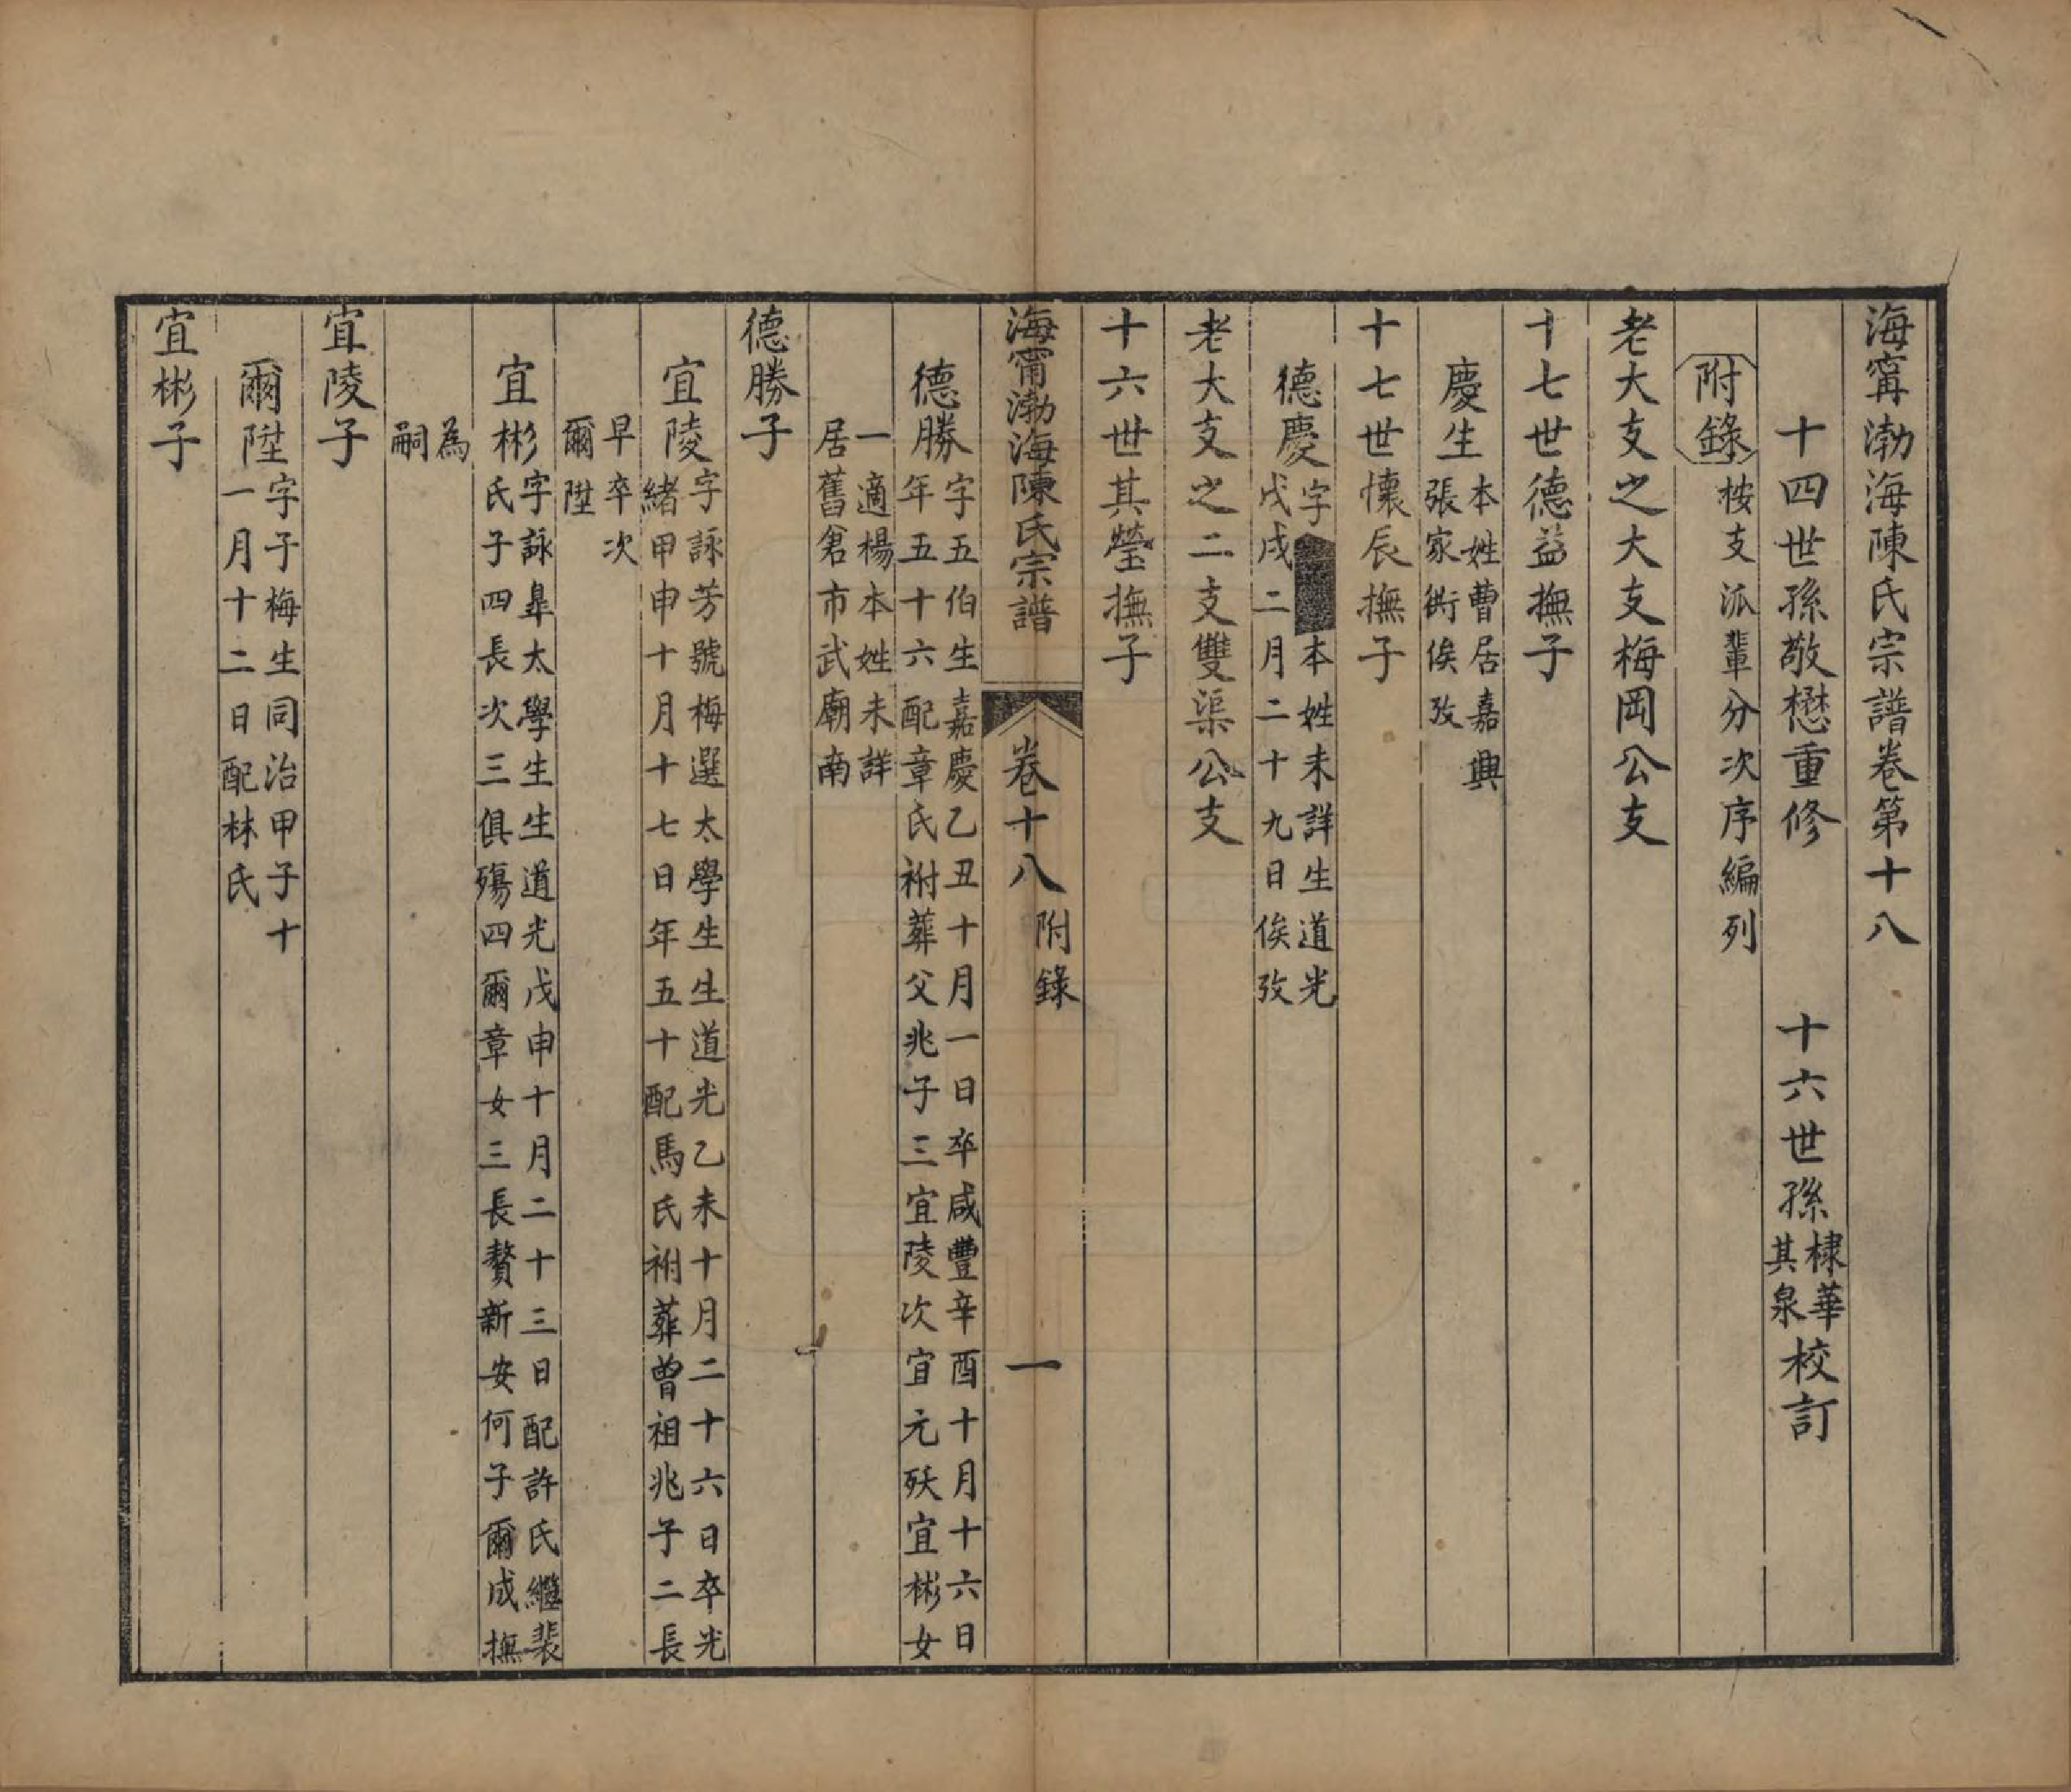 海甯渤海陳氏宗譜卷第十八
十四世孫敬懋重修
十六世孫棣華其泉校訂
附錄
按支派輩分次序編列
老大支之大支梅岡公支
十七世德益撫子
慶生
本姓曹居嘉興
張家衖俟攷
十七世懷辰撫子
德慶
字 本姓未詳生道光
戊戌二月二十九日俟攷
老大支之二支雙渠公支
十六世其瑩撫子
海甯渤海陳氏宗譜
卷十八
附錄
一
德勝
字五伯生嘉慶乙丑十月一日卒咸豐辛酉十月十六日
年五十六配章氏祔葬父兆子三宜陵次宜元殀宜彬女
一適楊本姓未詳
居舊倉市武廟南
德勝子
宜陵
字詠芳號梅選太學生生道光乙未十月二十六日卒光
緒甲申十月十七日年五十配馬氏祔葬曾祖兆子二長
早卒次
爾陞
宜彬
字詠皐太學生生道光戊申十月二十三日配許氏繼裴
氏子四長次三俱殤四爾章女三長贅新安何子爾成撫
為
嗣
宜陵子
爾陞
字子梅生同治甲子十
一月十二日配林氏
宜彬子